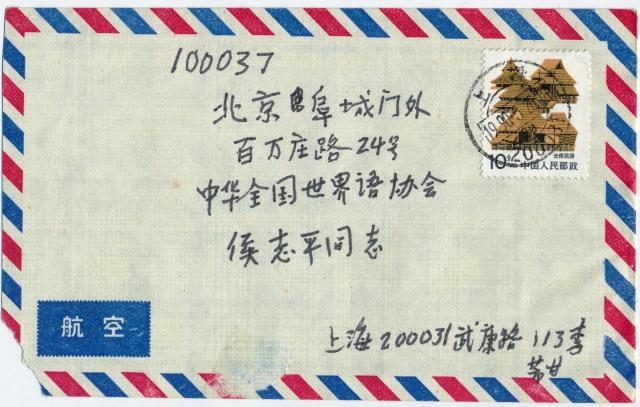 100037
北京阜城门外
百万庄路24号
中华全国世界语协会
侯志平同志
上海200031武康路113李
芾甘
航空
10分
云南民居
中国人民邮政